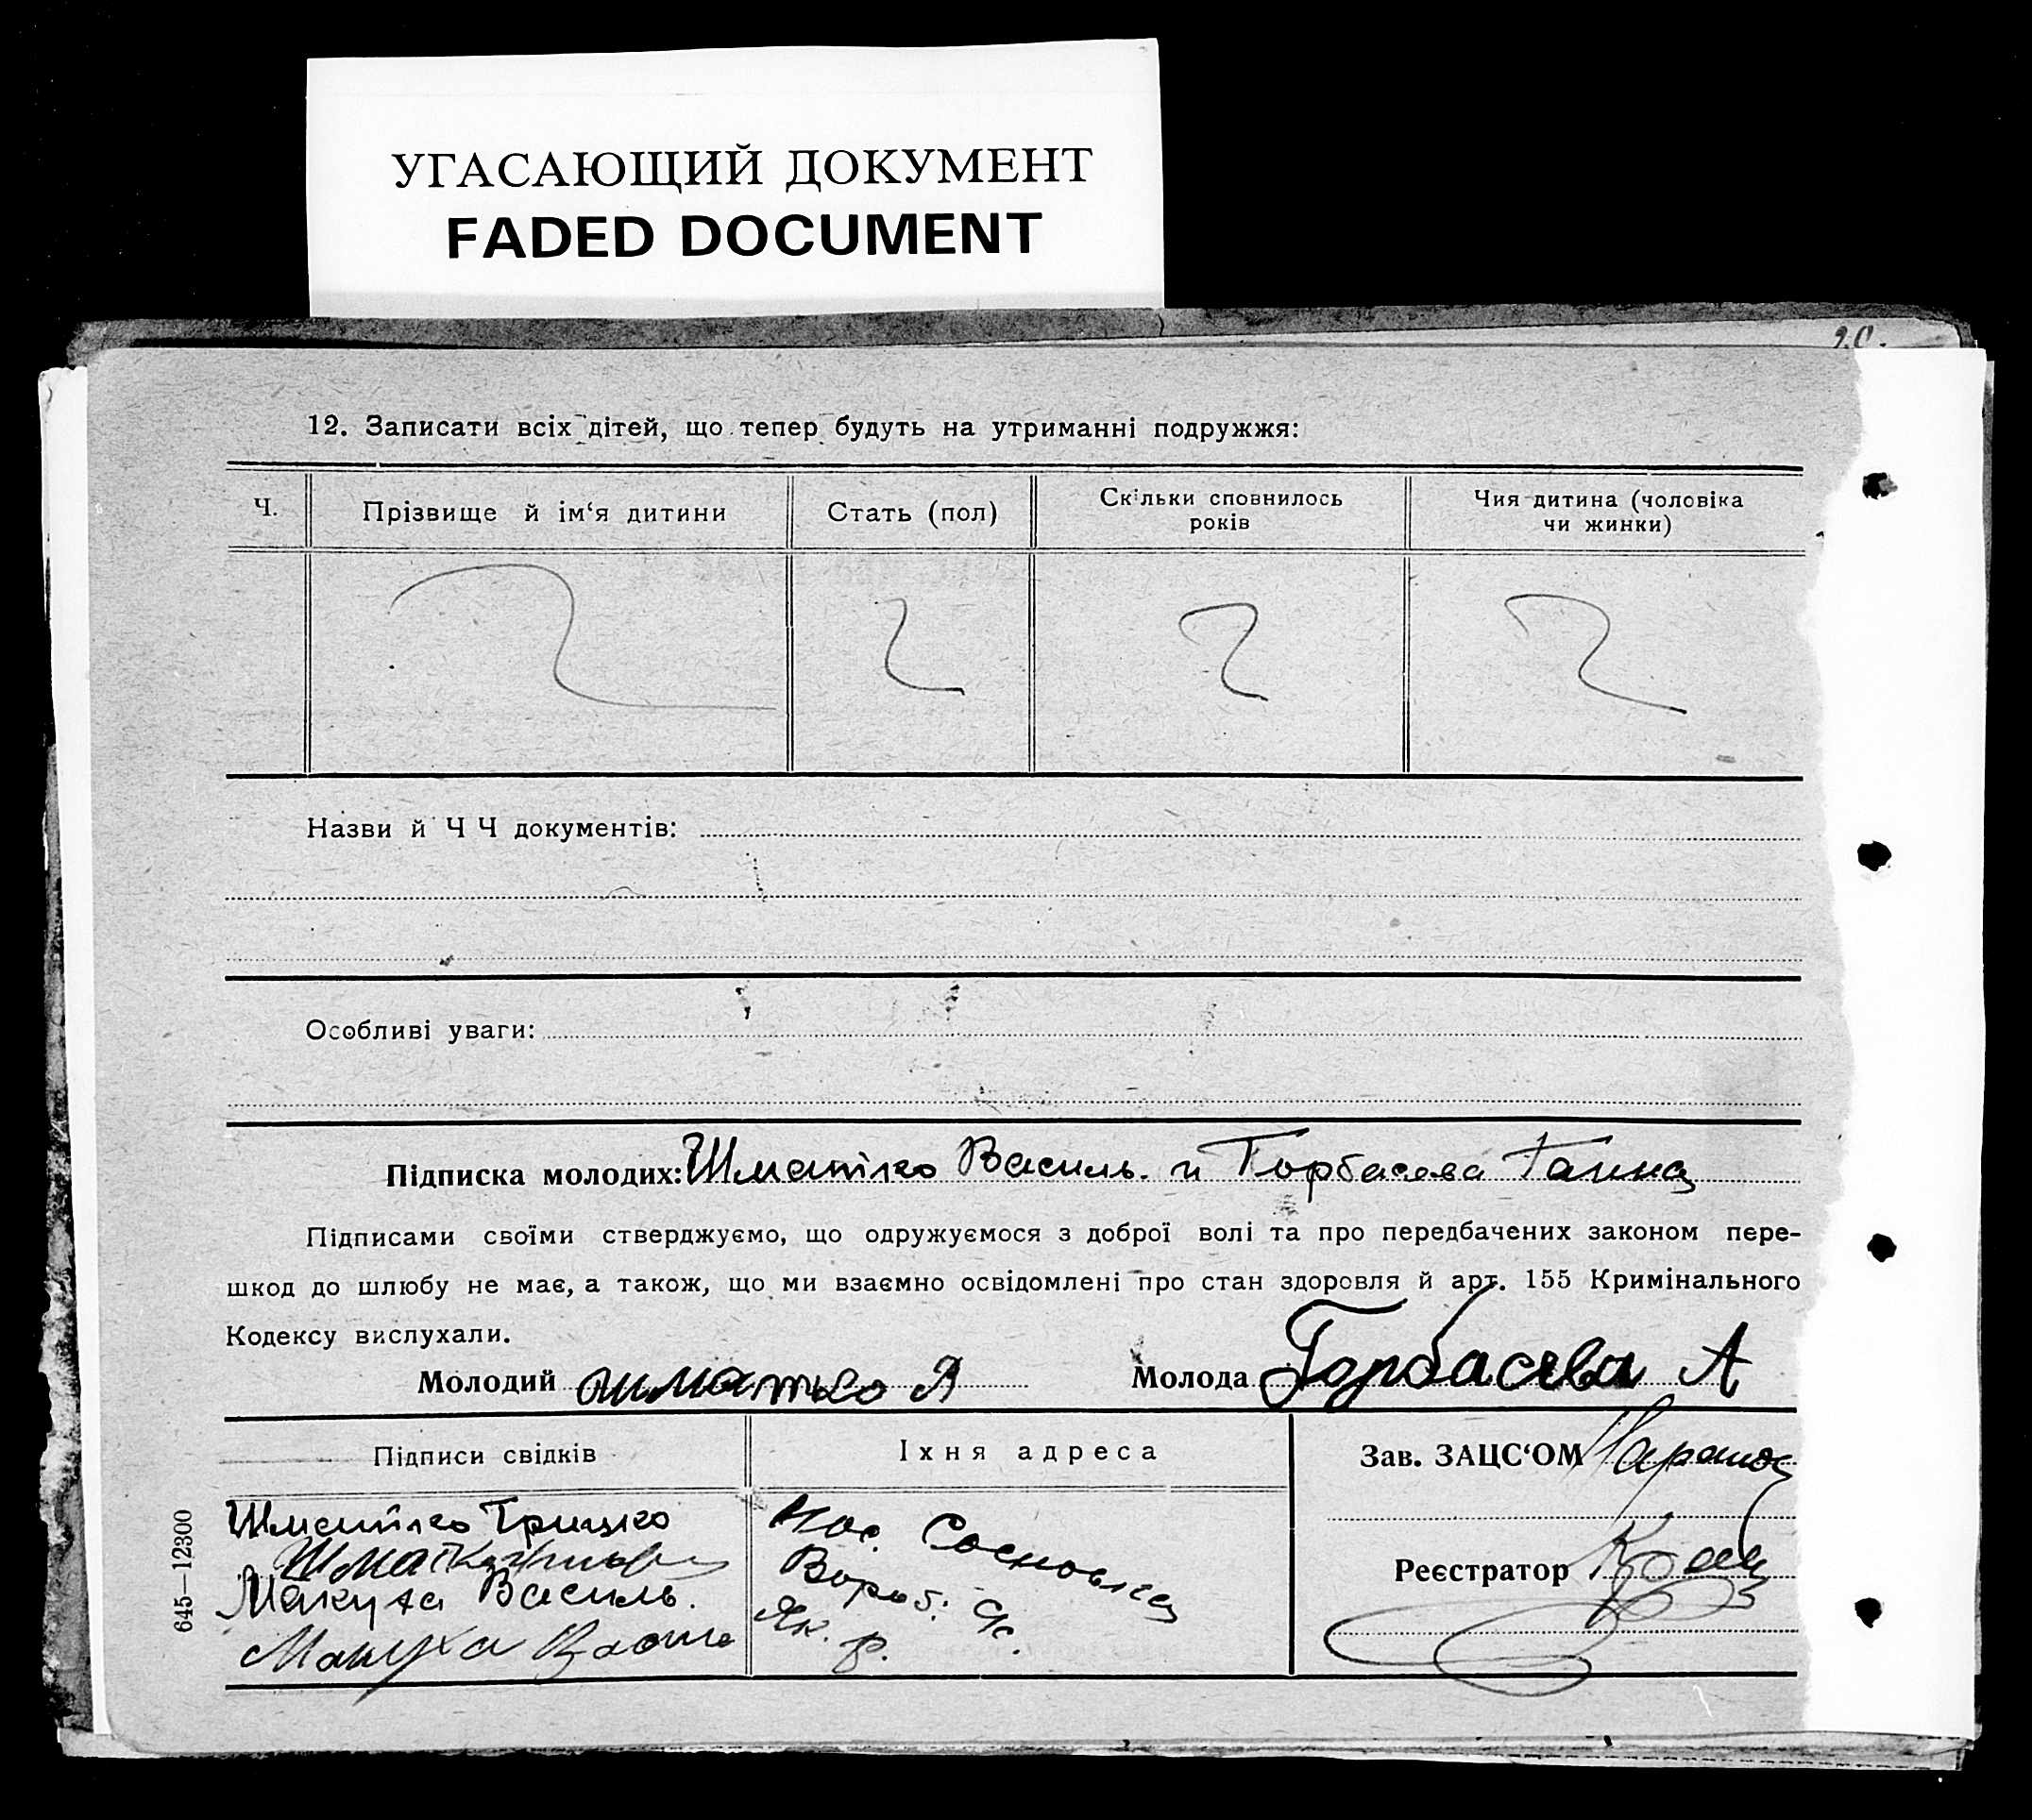 УГАСАЮЩИЙ ДОКУМЕНТ
FADED DOCUMENT
12. Записати всіх дітей, що тепер будуть на утриманні подружжя:
Ч. Прізвище й ім‘я дитини Стать (пол) Скільки сповнилось років Чия дитина (чоловіка чи жинки)
Назви й Ч Ч документів:
Особливі уваги:
Підписка молодих: Шматко Василь и Горбасева Ганна
Підписами своїми стверджуємо, що одружуємося з доброї волі та про передбачених законом пере-
шкод до шлюбу не має, а також, що ми взаємно освідомлені про стан здоровля й арт. 155 Кримінального
Кодексу вислухали.
Молодий шматко В Молода Горбасева А
Підписи свідків Іхня адреса Зав. ЗАЦС‘ОМ
Шматко Грицко
Макуха Василь.
Реєстратор
Макуха
Сосновка
645—12300